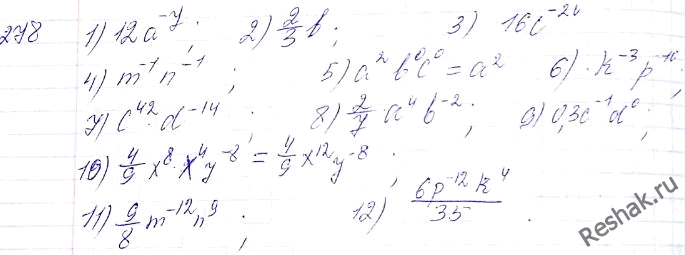 278 1) 12a⁻⁷; 2) 2/3 b; 3) 16c⁻²⁶
4) m⁻¹n⁻¹; 5) a²b⁰c⁰ = a² 6) · k⁻³p⁻¹⁶;
7) c⁴² · d⁻¹⁴; 8) 2/7 a⁴b⁻²; 9) 0,3c⁻¹d⁰;
10) 4/9 x⁸ · x⁴y⁻⁸ = 4/9 x¹²y⁻⁸;
11) 9/8 m⁻¹²n⁹; 12) 6p⁻¹²k⁴/35.
Reshak.ru